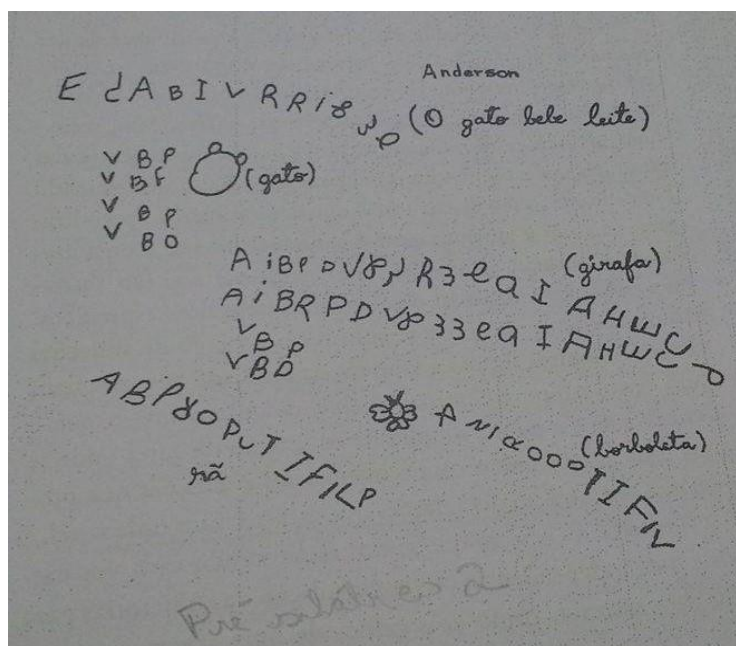 Anderson
E d A B I V R R i 8 3 0 (O gato bebe leite)
V B P
V B F (gato)
V B P
V B O
A i B P D V 8 R 3 e a I A H W C P (girafa)
A i B R P D V 8 3 3 e a I A H W C
V B P
V B D
A B P 8 O P U T I F I L P
rã
A N I R O O O T I F I V (borboleta)
Pré silábico 2